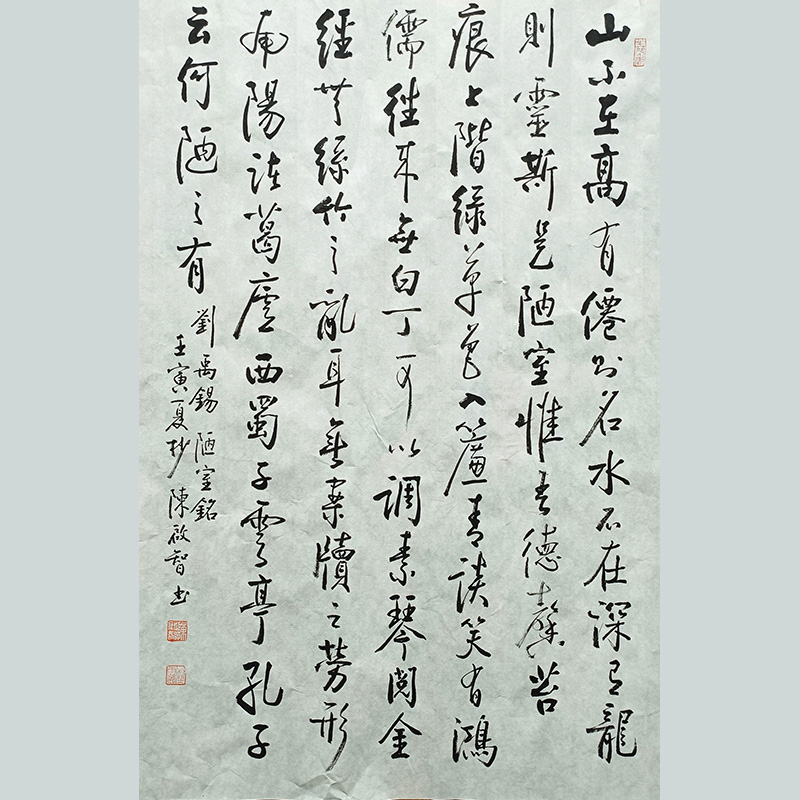 山不在高有僊則名水不在深有龍
則靈斯是陋室惟吾德馨苔
痕上階綠草色入簾青談笑有鴻
儒徃來無白丁可以調素琴閱金
經無絲竹之亂耳無案牘之勞形
南陽諸葛廬西蜀子雲亭孔子
云何陋之有
劉禹錫 陋室銘
壬寅夏杪 陳啟智書